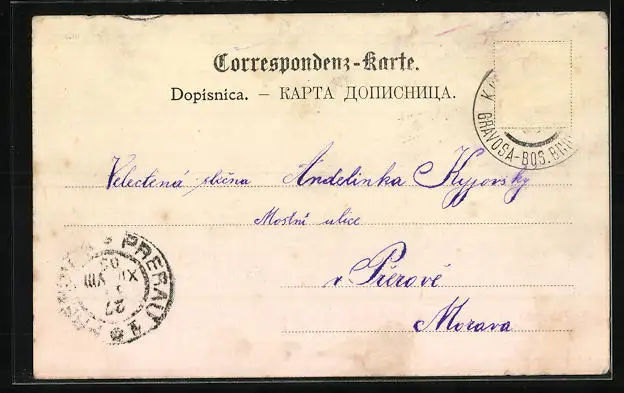 Correspondenz-Karte.
Dopisnica. – КАРТА ДОПИСНИЦА.
GRAVOSA-BOS. BROD
Velectěná slečna Andelinka Kyjovsky
Mostní ulice
v Přerově
Morava
PRERAU